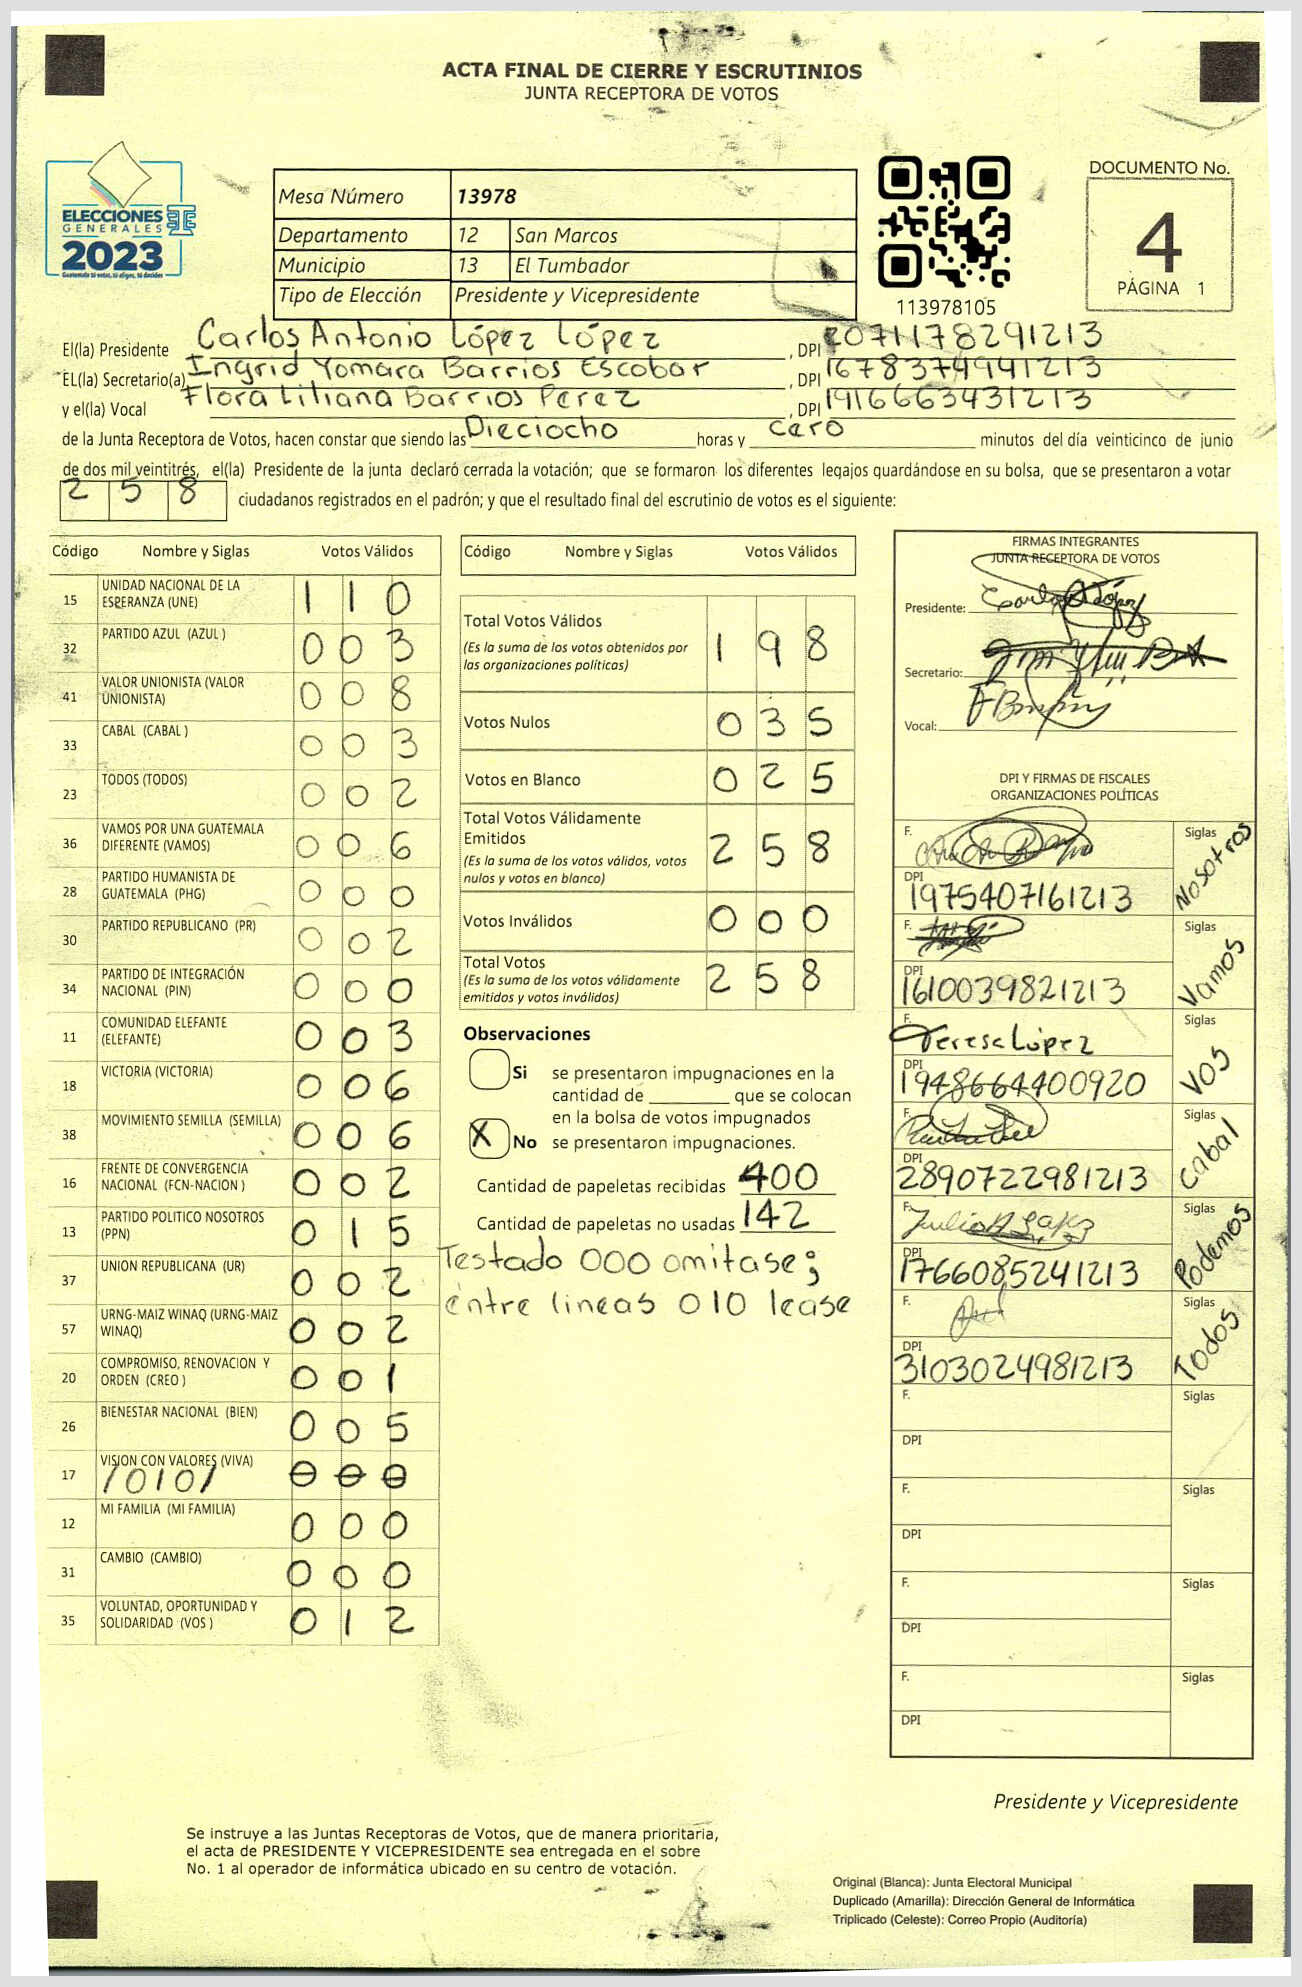 ACTA FINAL DE CIERRE Y ESCRUTINIOS
JUNTA RECEPTORA DE VOTOS
ELECCIONES
GENERALES
2023
Guatemala tú votas, tú eliges, tú decides
Mesa Número 13978
Departamento 12 San Marcos
Municipio 13 El Tumbador
Tipo de Elección Presidente y Vicepresidente
113978105
DOCUMENTO No.
4
PÁGINA 1
El(la) Presidente Carlos Antonio López López, DPI 2071178291213
EL(la) Secretario(a) Ingrid Yomara Barrios Escobar, DPI 1678374941213
y el(la) Vocal Flora Liliana Barrios Perez, DPI 1916663431213
de la Junta Receptora de Votos, hacen constar que siendo las Dieciocho horas y cero minutos del día veinticinco de junio
de dos mil veintitrés, el(la) Presidente de la junta declaró cerrada la votación; que se formaron los diferentes legajos guardándose en su bolsa, que se presentaron a votar
258 ciudadanos registrados en el padrón; y que el resultado final del escrutinio de votos es el siguiente:
Código Nombre y Siglas Votos Válidos
15 UNIDAD NACIONAL DE LA ESPERANZA (UNE) 110
32 PARTIDO AZUL (AZUL ) 003
41 VALOR UNIONISTA (VALOR UNIONISTA) 008
33 CABAL (CABAL ) 003
23 TODOS (TODOS) 002
36 VAMOS POR UNA GUATEMALA DIFERENTE (VAMOS) 006
28 PARTIDO HUMANISTA DE GUATEMALA (PHG) 000
30 PARTIDO REPUBLICANO (PR) 002
34 PARTIDO DE INTEGRACIÓN NACIONAL (PIN) 000
11 COMUNIDAD ELEFANTE (ELEFANTE) 003
18 VICTORIA (VICTORIA) 006
38 MOVIMIENTO SEMILLA (SEMILLA) 006
16 FRENTE DE CONVERGENCIA NACIONAL (FCN-NACION ) 002
13 PARTIDO POLITICO NOSOTROS (PPN) 015
37 UNION REPUBLICANA (UR) 002
57 URNG-MAIZ WINAQ (URNG-MAIZ WINAQ) 002
20 COMPROMISO, RENOVACION Y ORDEN (CREO ) 001
26 BIENESTAR NACIONAL (BIEN) 005
17 VISION CON VALORES (VIVA) /010/ 000
12 MI FAMILIA (MI FAMILIA) 000
31 CAMBIO (CAMBIO) 000
35 VOLUNTAD, OPORTUNIDAD Y SOLIDARIDAD (VOS ) 012
Código Nombre y Siglas Votos Válidos
Total Votos Válidos 198
(Es la suma de los votos obtenidos por
las organizaciones políticas)
Votos Nulos 035
Votos en Blanco 025
Total Votos Válidamente
Emitidos 258
(Es la suma de los votos válidos, votos
nulos y votos en blanco)
Votos Inválidos 000
Total Votos 258
(Es la suma de los votos válidamente
emitidos y votos inválidos)
Observaciones
Si se presentaron impugnaciones en la
cantidad de ________ que se colocan
en la bolsa de votos impugnados
X No se presentaron impugnaciones.
Cantidad de papeletas recibidas 400
Cantidad de papeletas no usadas 142
Testado 000 omitase;
entre lineas 010 lease
FIRMAS INTEGRANTES
JUNTA RECEPTORA DE VOTOS
Presidente: Carlos López
Secretario:
Vocal:
DPI Y FIRMAS DE FISCALES
ORGANIZACIONES POLÍTICAS
F. Siglas Nosotros
DPI 1975407161213
F. Siglas Vamos
DPI 1610039821213
F. Teresa López Siglas VOS
DPI 1948664400920
F. Siglas Cabal
DPI 2890722981213
F. Siglas Podemos
DPI 1766085241213
F. Siglas Todos
DPI 3103024981213
F. Siglas
DPI
F. Siglas
DPI
F. Siglas
DPI
F. Siglas
DPI
Presidente y Vicepresidente
Se instruye a las Juntas Receptoras de Votos, que de manera prioritaria,
el acta de PRESIDENTE Y VICEPRESIDENTE sea entregada en el sobre
No. 1 al operador de informática ubicado en su centro de votación.
Original (Blanca): Junta Electoral Municipal
Duplicado (Amarilla): Dirección General de Informática
Triplicado (Celeste): Correo Propio (Auditoría)